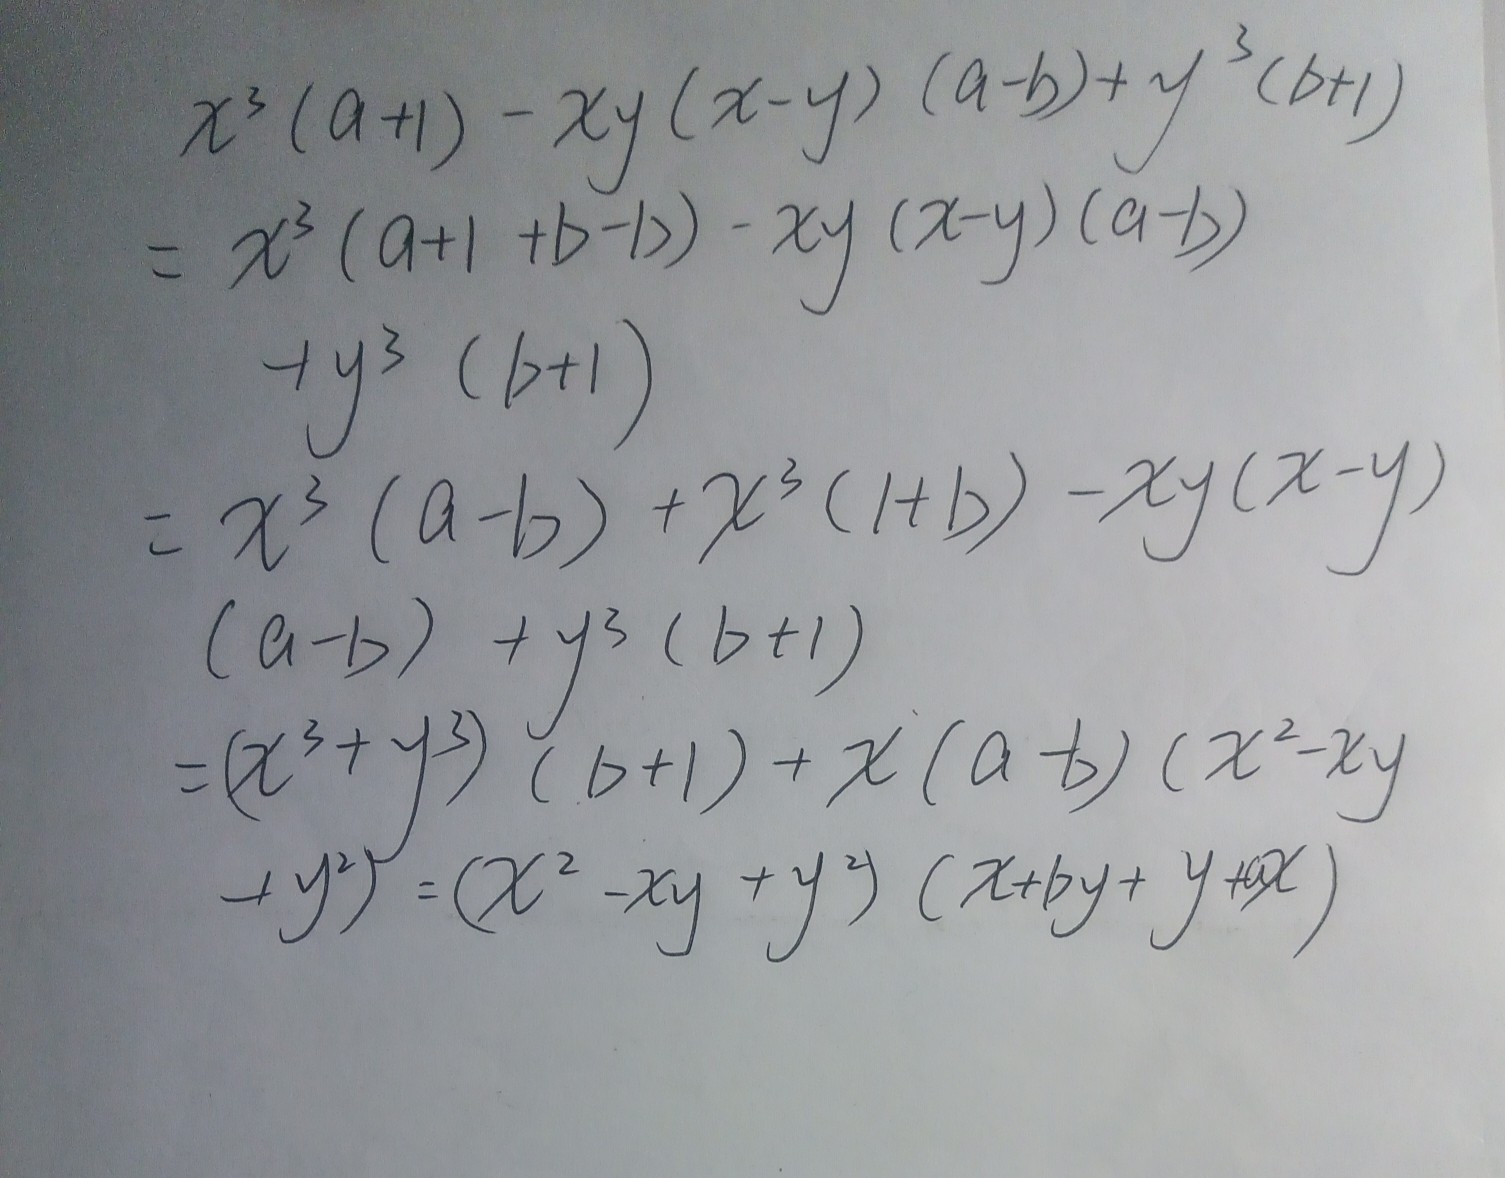 x³(a+1)-xy(x-y)(a-b)+y³(b+1)
=x³(a+1+b-b)-xy(x-y)(a-b)
+y³(b+1)
=x³(a-b)+x³(1+b)-xy(x-y)
(a-b)+y³(b+1)
=(x³+y³)(b+1)+x(a-b)(x²-xy
+y²)=(x²-xy+y²)(x+by+y+ax)